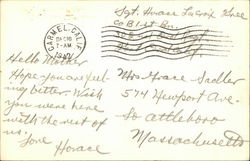 Sgt. Horace
Co B 1st Bn.
CARMEL, CALIF.
DEC 16
7-AM
Hello Mother
Hope you are feel-
ing better. Wish
you were here
with the rest of
us.
Love
Horace
Mrs Grace Sadler
574 Newport Ave.
So Attleboro
Massachusetts